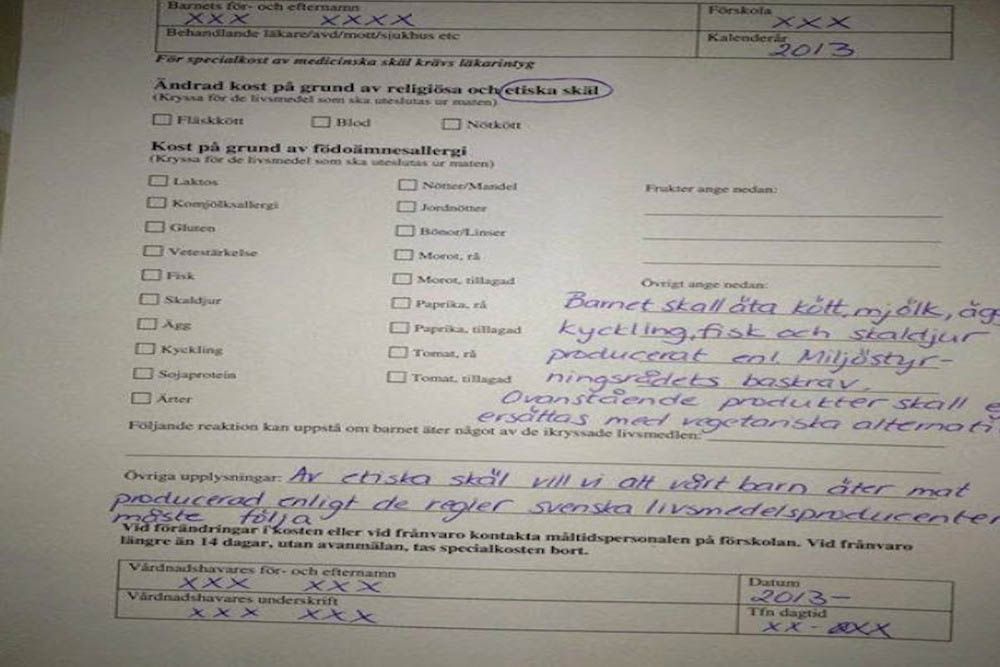 Barnets för- och efternamn
XXX XXXX
Förskola
XXX
Behandlande läkare/avd/mott/sjukhus etc
Kalenderår
2013
För specialkost av medicinska skäl krävs läkarintyg
Ändrad kost på grund av religiösa och etiska skäl
(Kryssa för de livsmedel som ska uteslutas ur maten)
Fläskkött Blod Nötkött
Kost på grund av födoämnesallergi
(Kryssa för de livsmedel som ska uteslutas ur maten)
Laktos
Komjölksallergi
Gluten
Vetestärkelse
Fisk
Skaldjur
Ägg
Kyckling
Sojaprotein
Ärter
Nötter/Mandel
Jordnötter
Bönor/Linser
Morot, rå
Morot, tillagad
Paprika, rå
Paprika, tillagad
Tomat, rå
Tomat, tillagad
Frukter ange nedan:
Övrigt ange nedan:
Barnet skall äta kött, mjölk, äg
kyckling, fisk och skaldjur
producerat enl. Miljöstyr-
ningsrådets baskrav.
Ovanstående produkter skall e
ersättas med vegetariska alternati
Följande reaktion kan uppstå om barnet äter något av de ikryssade livsmedlen:
Övriga upplysningar: Av etiska skäl vill vi att vårt barn äter mat
producerad enligt de regler svenska livsmedelsproducenter
måste följa
Vid förändringar i kosten eller vid frånvaro kontakta måltidspersonalen på förskolan. Vid frånvaro
längre än 14 dagar, utan avanmälan, tas specialkosten bort.
Vårdnadshavares för- och efternamn
XXX XXX
Datum
2013-
Vårdnadshavares underskrift
XXX XXX
Tfn dagtid
XX-